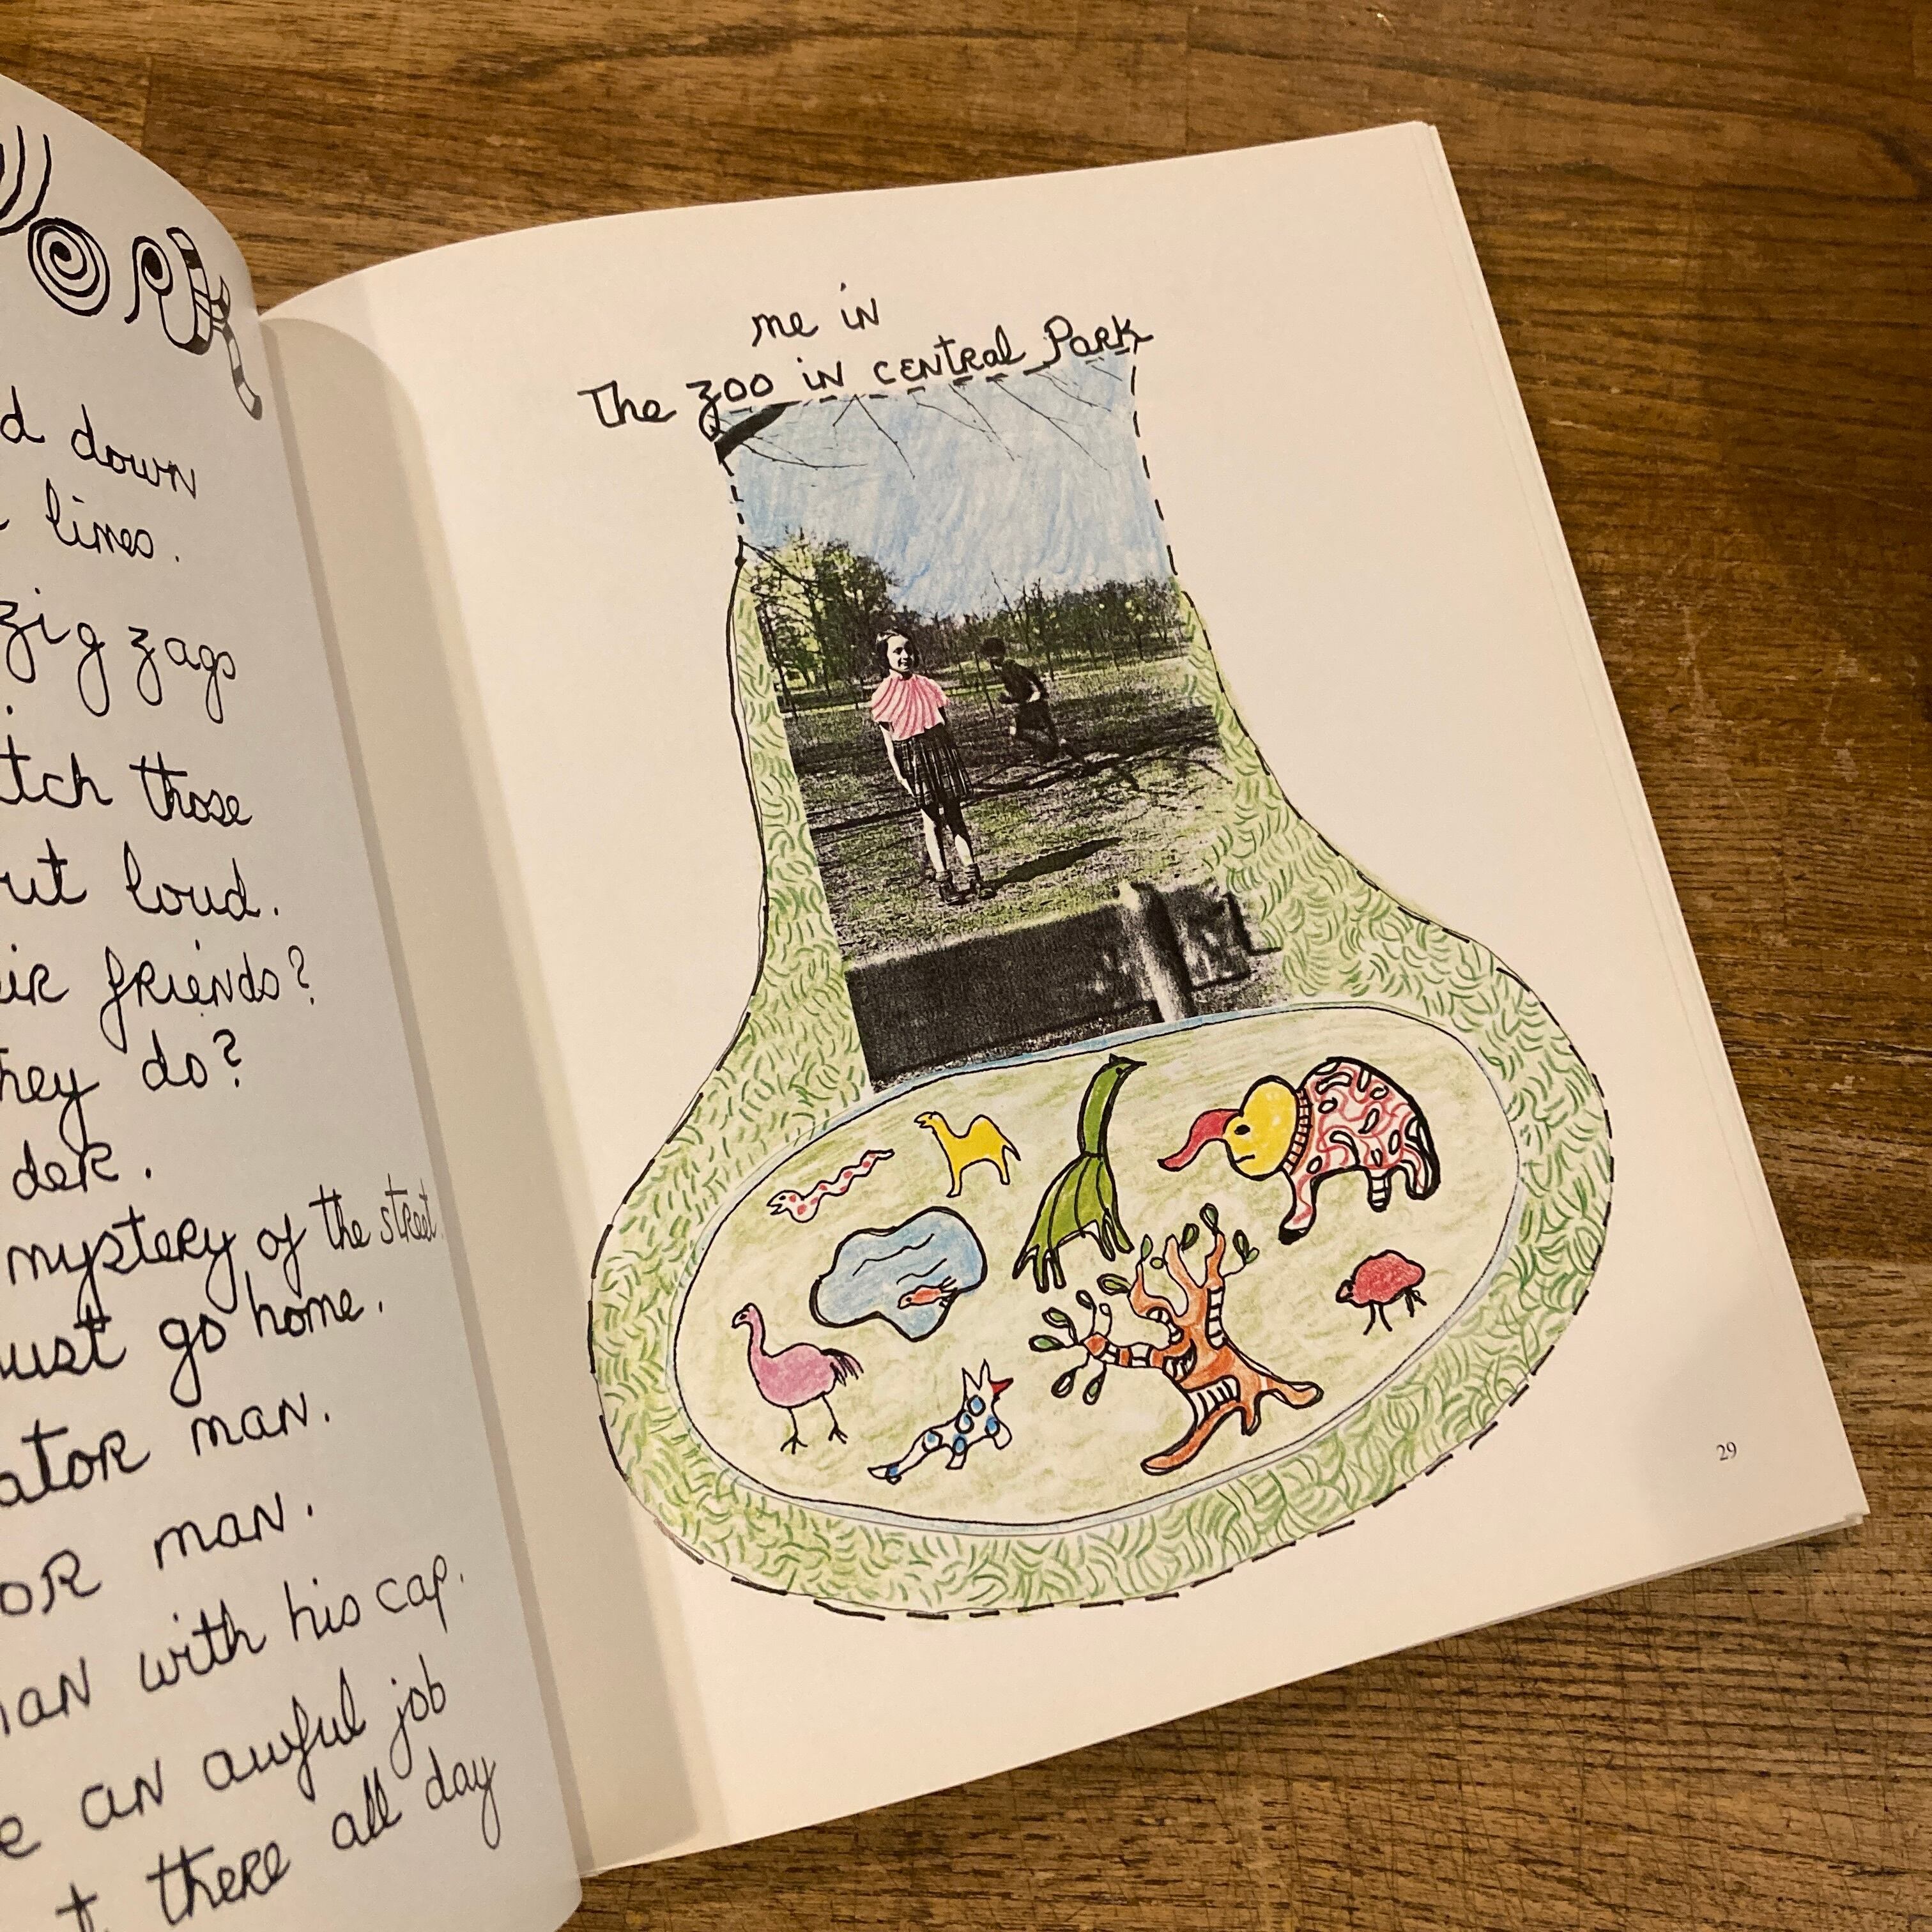 down
lines.
zig zags
those
loud.
friends?
they do?
mystery of the street
go home.
man.
man.
with his cap.
an awful job
there all day
me in
The zoo in central Park
29